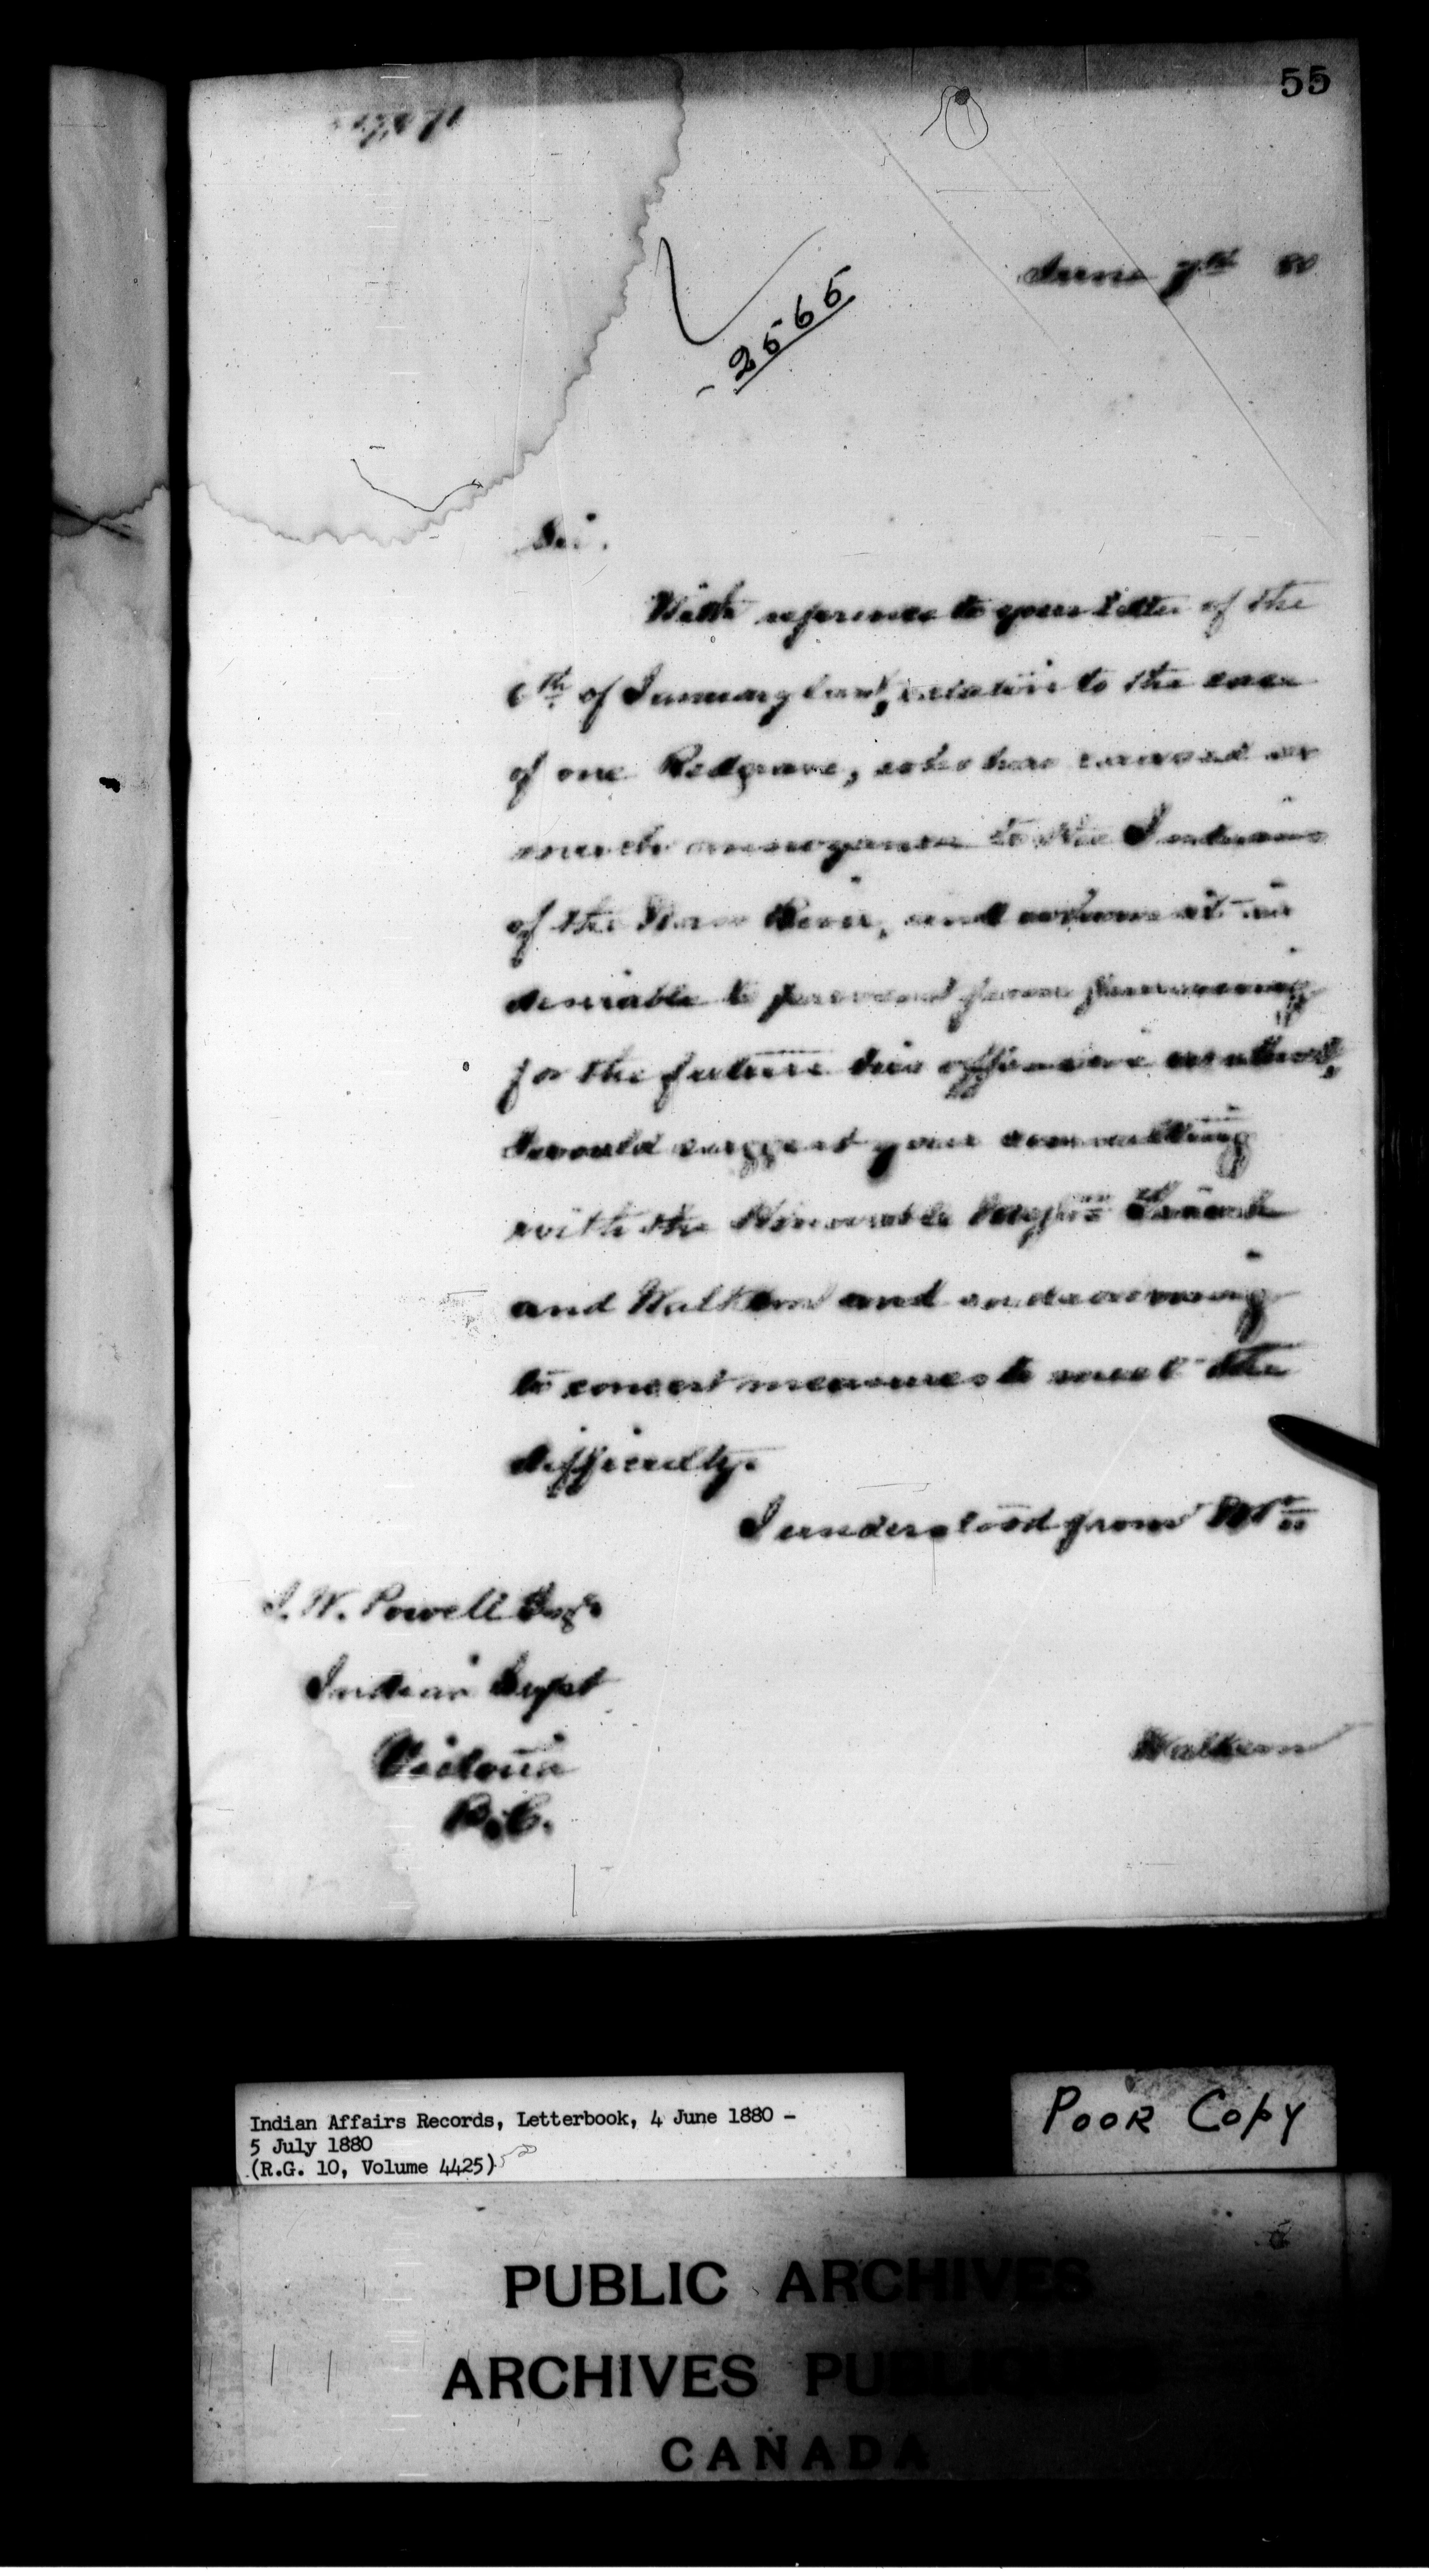 55
June 7th 80
2565
Sir.
With reference to your letter of the
6th of January last, relative to the case
of one Redgrave, who has caused so
much annoyance to the Indians
of the Nass River, and whom it is
desirable to prevent from pursuing
for the future his offensive conduct,
I would suggest your consulting
with the Honorable
and Walkem and endeavouring
to concert measures to meet the
difficulty.
I understood from Mr
I. W. Powell Esqr
Indian Supt
Victoria
B.C.
Walkem
Indian Affairs Records, Letterbook, 4 June 1880 -
5 July 1880
(R.G. 10, Volume 4425)
POOR COPY
PUBLIC ARCHIVES
ARCHIVES PUBLIQUES
CANADA